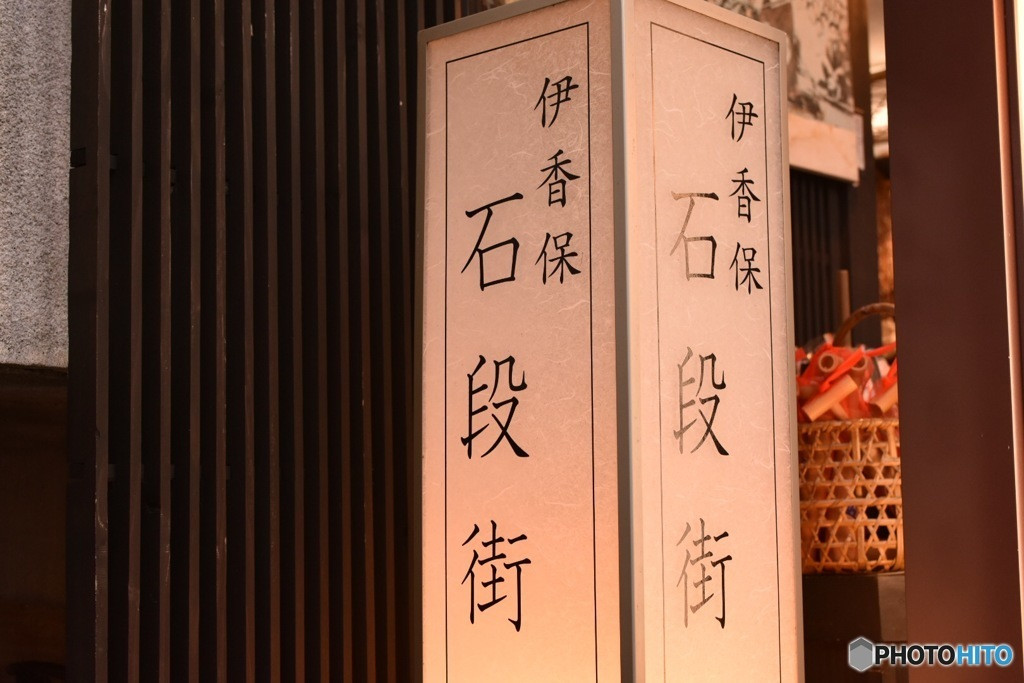 伊香保
石段街
伊香保
石段街
PHOTOHITO